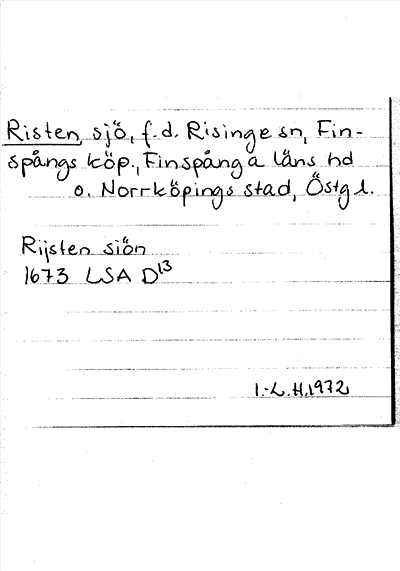 Risten, sjö, f.d. Risinge sn, Fin-
spångs köp., Finspånga läns hd
o. Norrköpings stad, Östg l.
Rijsten siön
1673 LSA D13
I.-L.H. 1972